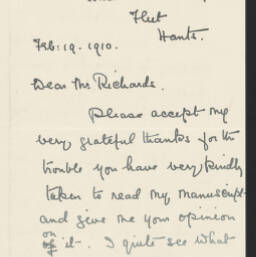 Fleet
Hants.
Feb: 19. 1910.
Dear Mr Richards.
Please accept my
very grateful thanks for the
trouble you have very kindly
taken to read my manuscript
and give me your opinion
on
of it. I quite see what